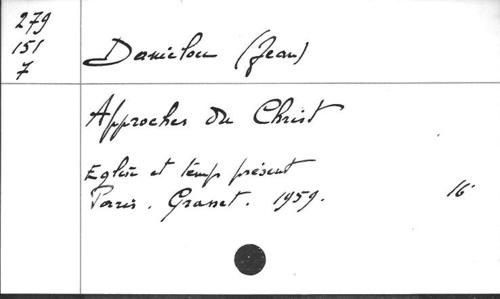 279
151
7
Danielou (Jean)
Approches du Christ
Eglise et temps présent
Paris. Grasset. 1959. 16°